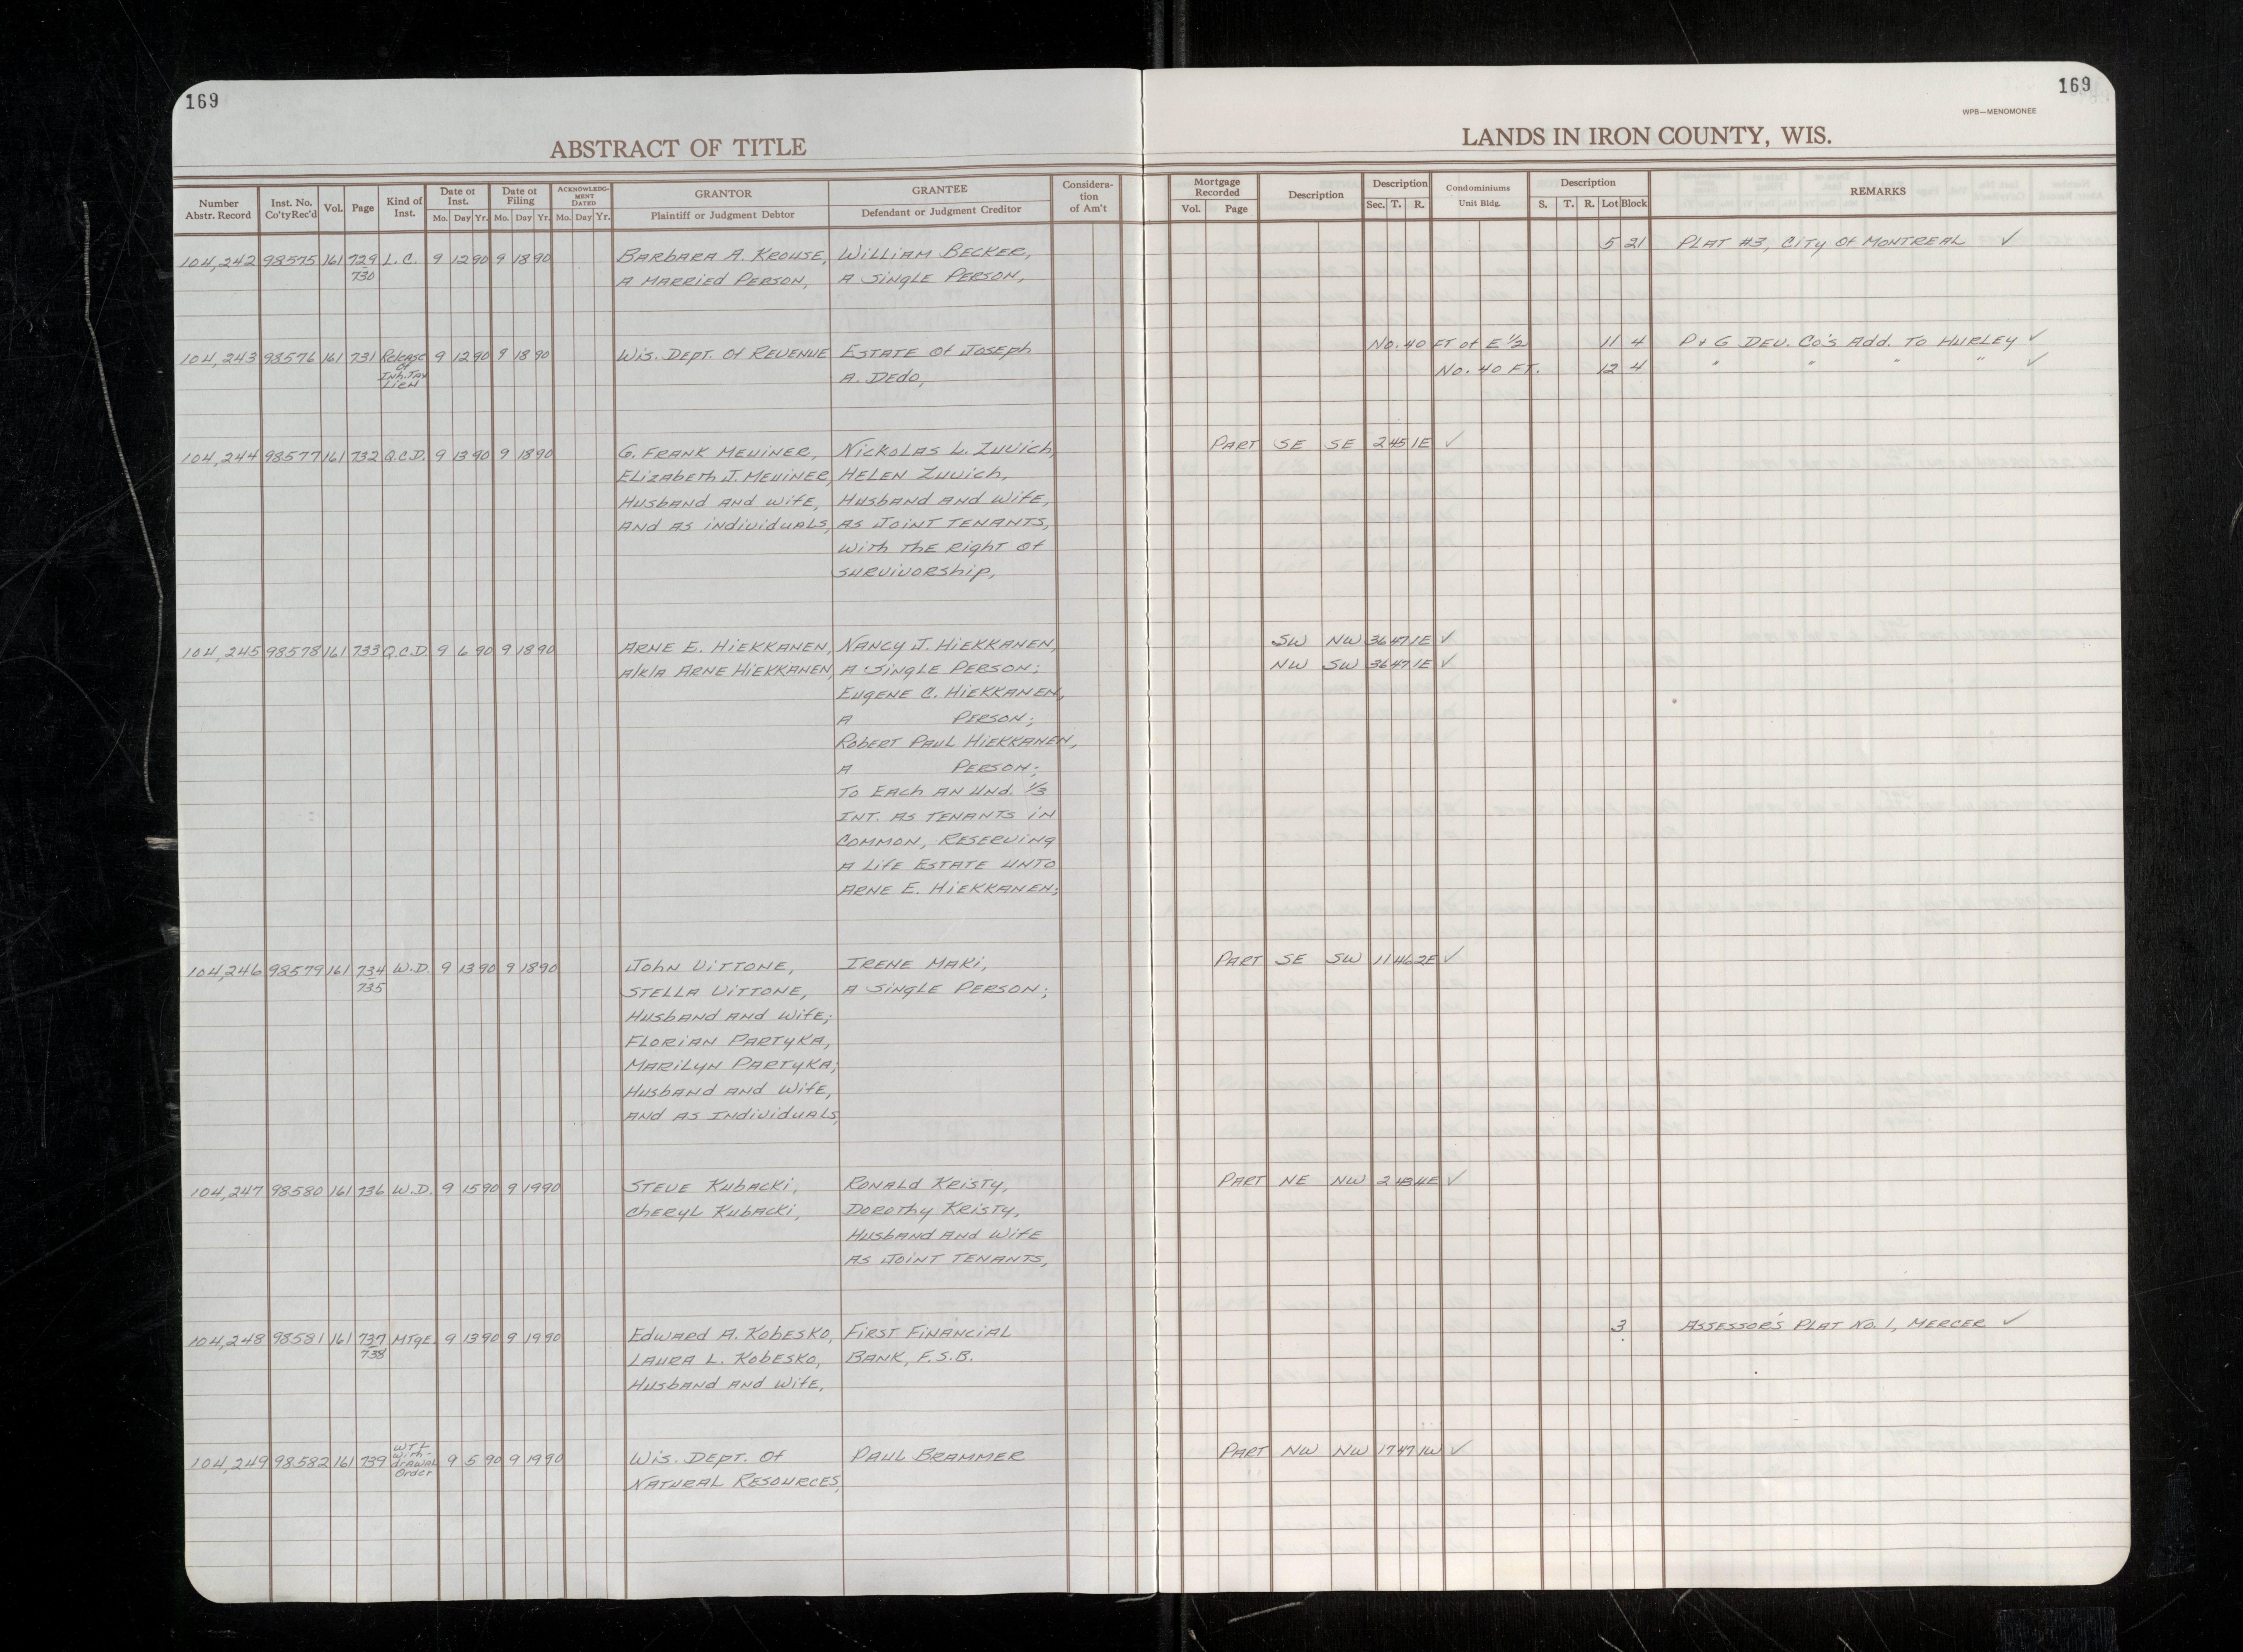 169
169
WPB—MENOMONEE
ABSTRACT OF TITLE
LANDS IN IRON COUNTY, WIS.
Number Abstr. Record Inst. No. Co'ty Rec'd Vol. Page Kind of Inst. Date of Inst. Mo. Day Yr. Date of Filing Mo. Day Yr. ACKNOWLEDGMENT DATED Mo. Day Yr. GRANTOR Plaintiff or Judgment Debtor GRANTEE Defendant or Judgment Creditor Consideration of Am't Mortgage Recorded Vol. Page Description Description Sec. T. R. Condominiums Unit Bldg. Description S. T. R. Lot Block REMARKS
104,242 98575 161 729 L.C. 9 12 90 9 18 90 Barbara A. Krouse, William Becker, 5 21 Plat #3, City of Montreal ✓
730 A Married Person, A Single Person,
104,243 98576 161 731 Release 9 12 90 9 18 90 Wis. Dept. of Revenue Estate of Joseph No. 40 FT of E 1/2 11 4 P + G Dev. Co's Add. To Hurley ✓
of
Inh. Tax A. Dedo, No. 40 FT. 12 4 " " " ✓
Lien
104,244 98577 161 732 Q.C.D. 9 13 90 9 18 90 G. Frank Meviner, Nickolas L. Zuvich, Part SE SE 2 45 1E ✓
Elizabeth J. Meviner, Helen Zuvich,
Husband and Wife, Husband and Wife,
and as individuals, as Joint Tenants,
with the Right of
survivorship,
104,245 98578 161 733 Q.C.D. 9 6 90 9 18 90 Arne E. Hiekkanen, Nancy J. Hiekkanen, SW NW 36 47 1E ✓
a/k/a Arne Hiekkanen, A Single Person; NW SW 36 47 1E ✓
Eugene C. Hiekkanen,
A Person;
Robert Paul Hiekkanen,
A Person;
To Each an Und. 1/3
Int. as Tenants in
Common, Reserving
a Life Estate unto
Arne E. Hiekkanen;
104,246 98579 161 734 W.D. 9 13 90 9 18 90 John Vittone, Irene Maki, Part SE SW 11 46 2E ✓
735 Stella Vittone, A Single Person;
Husband and Wife;
Florian Partyka,
Marilyn Partyka;
Husband and Wife,
and as Individuals,
104,247 98580 161 736 W.D. 9 15 90 9 19 90 Steve Kubacki, Ronald Kristy, Part NE NW 2 43 4E ✓
Cheryl Kubacki, Dorothy Kristy,
Husband and Wife
as Joint Tenants,
104,248 98581 161 737 Mtge. 9 13 90 9 19 90 Edward A. Kobesko, First Financial 3 Assessor's Plat No. 1, Mercer ✓
738 Laura L. Kobesko, Bank, F.S.B.
Husband and Wife,
WTL
104,249 98582 161 739 With-drawal 9 5 90 9 19 90 Wis. Dept. of Paul Brammer Part NW NW 17 47 1W ✓
Order
Natural Resources,